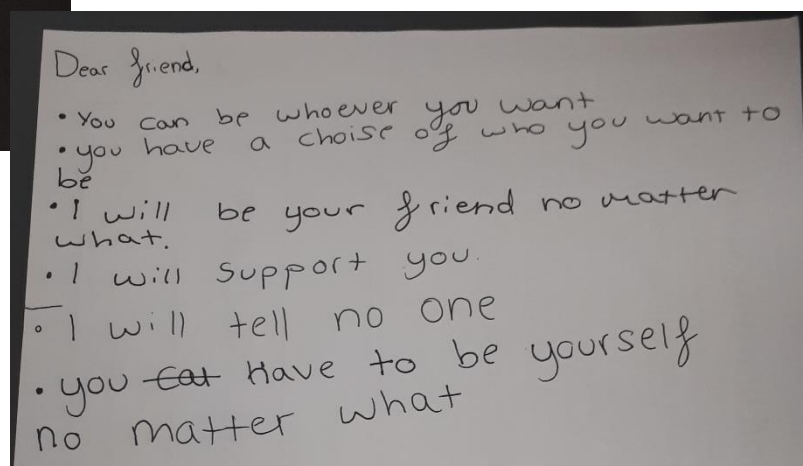 Dear friend,
• You can be whoever you want
• you have a choise of who you want to
be
• I will be your friend no matter
what.
• I will support you.
• I will tell no one
• you have to be yourself
no matter what